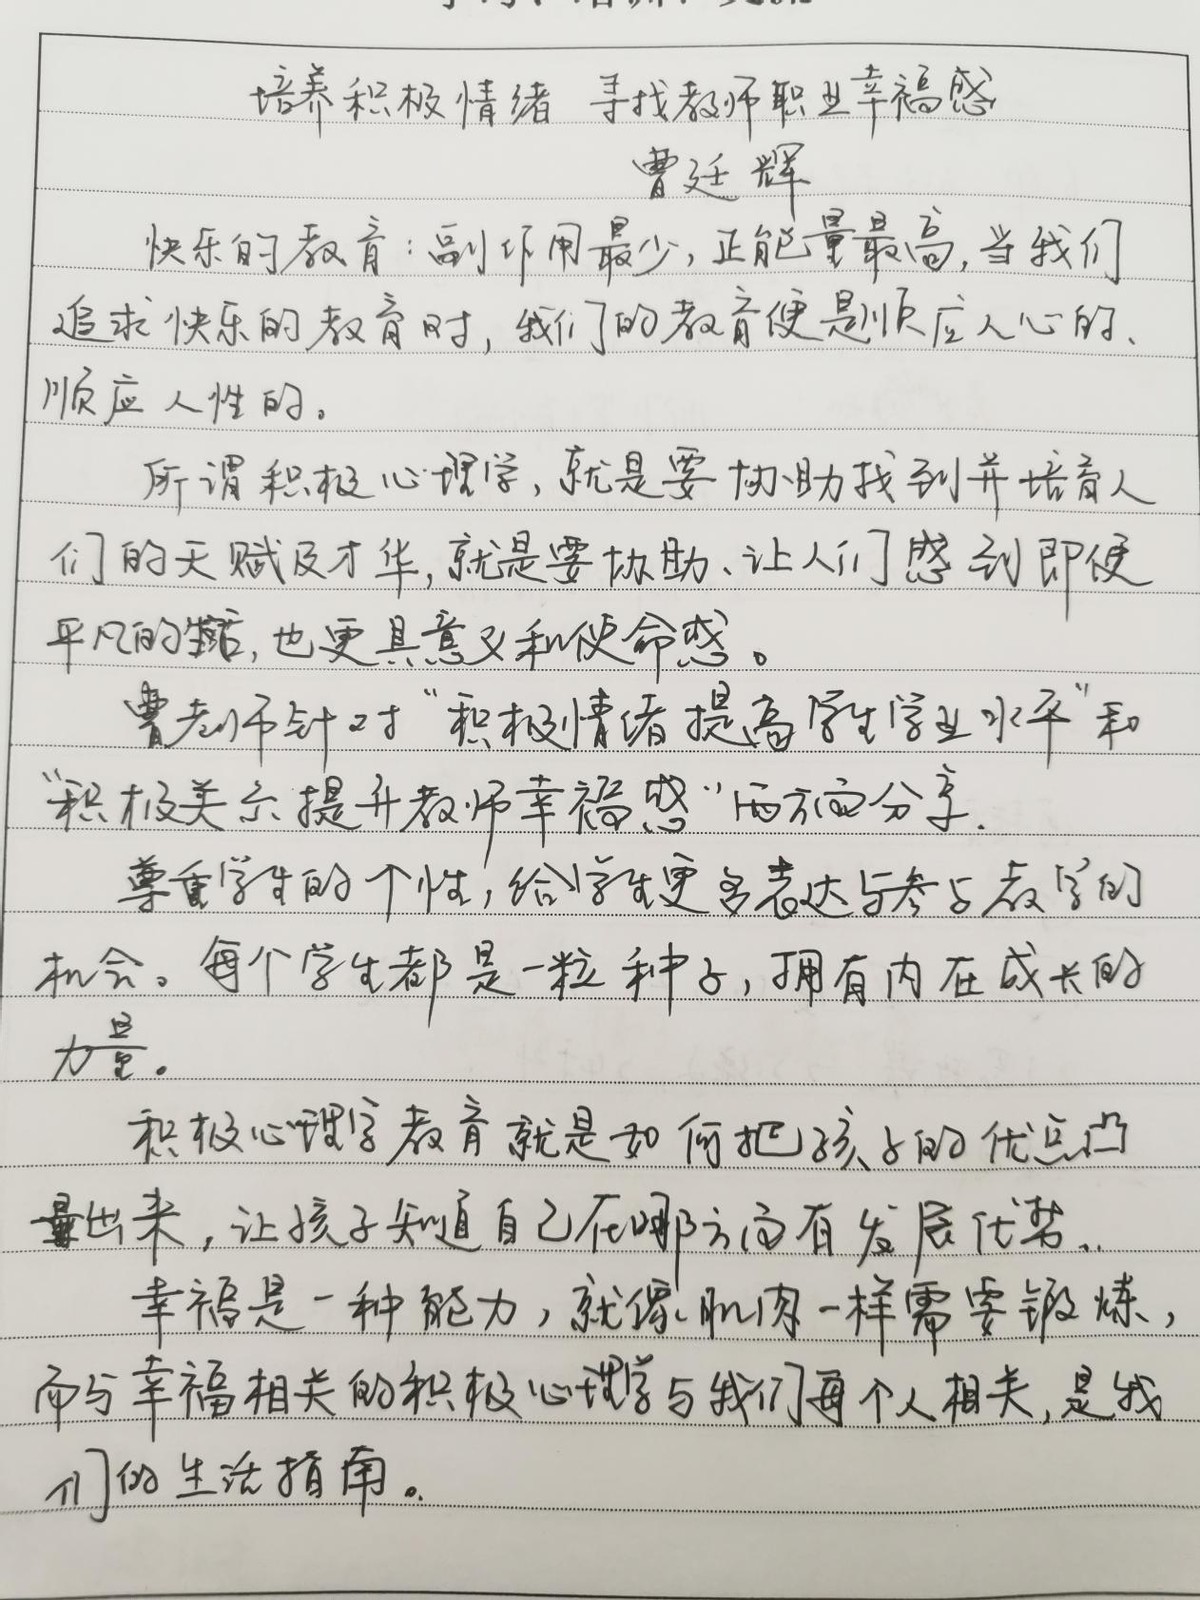 培养积极情绪 寻找教师职业幸福感
曹廷辉
快乐的教育：副作用最少，正能量最高，当我们
追求快乐的教育时，我们的教育便是顺应人心的、
顺应人性的。
所谓积极心理学，就是要协助找到并培育人
们的天赋及才华，就是要协助、让人们感到即便
平凡的生活，也更具意义和使命感。
曹老师针对“积极情绪提高学生学业水平”和
“积极关系提升教师幸福感”两方面分享.
尊重学生的个性，给学生更多表达与参与教学的
机会。每个学生都是一粒种子，拥有内在成长的
力量。
积极心理学教育就是如何把孩子的优点凸
出来，让孩子知道自己在哪方面有发展优势..
幸福是一种能力，就像肌肉一样需要锻炼，
而与幸福相关的积极心理学与我们每个人相关，是我
们的生活指南。